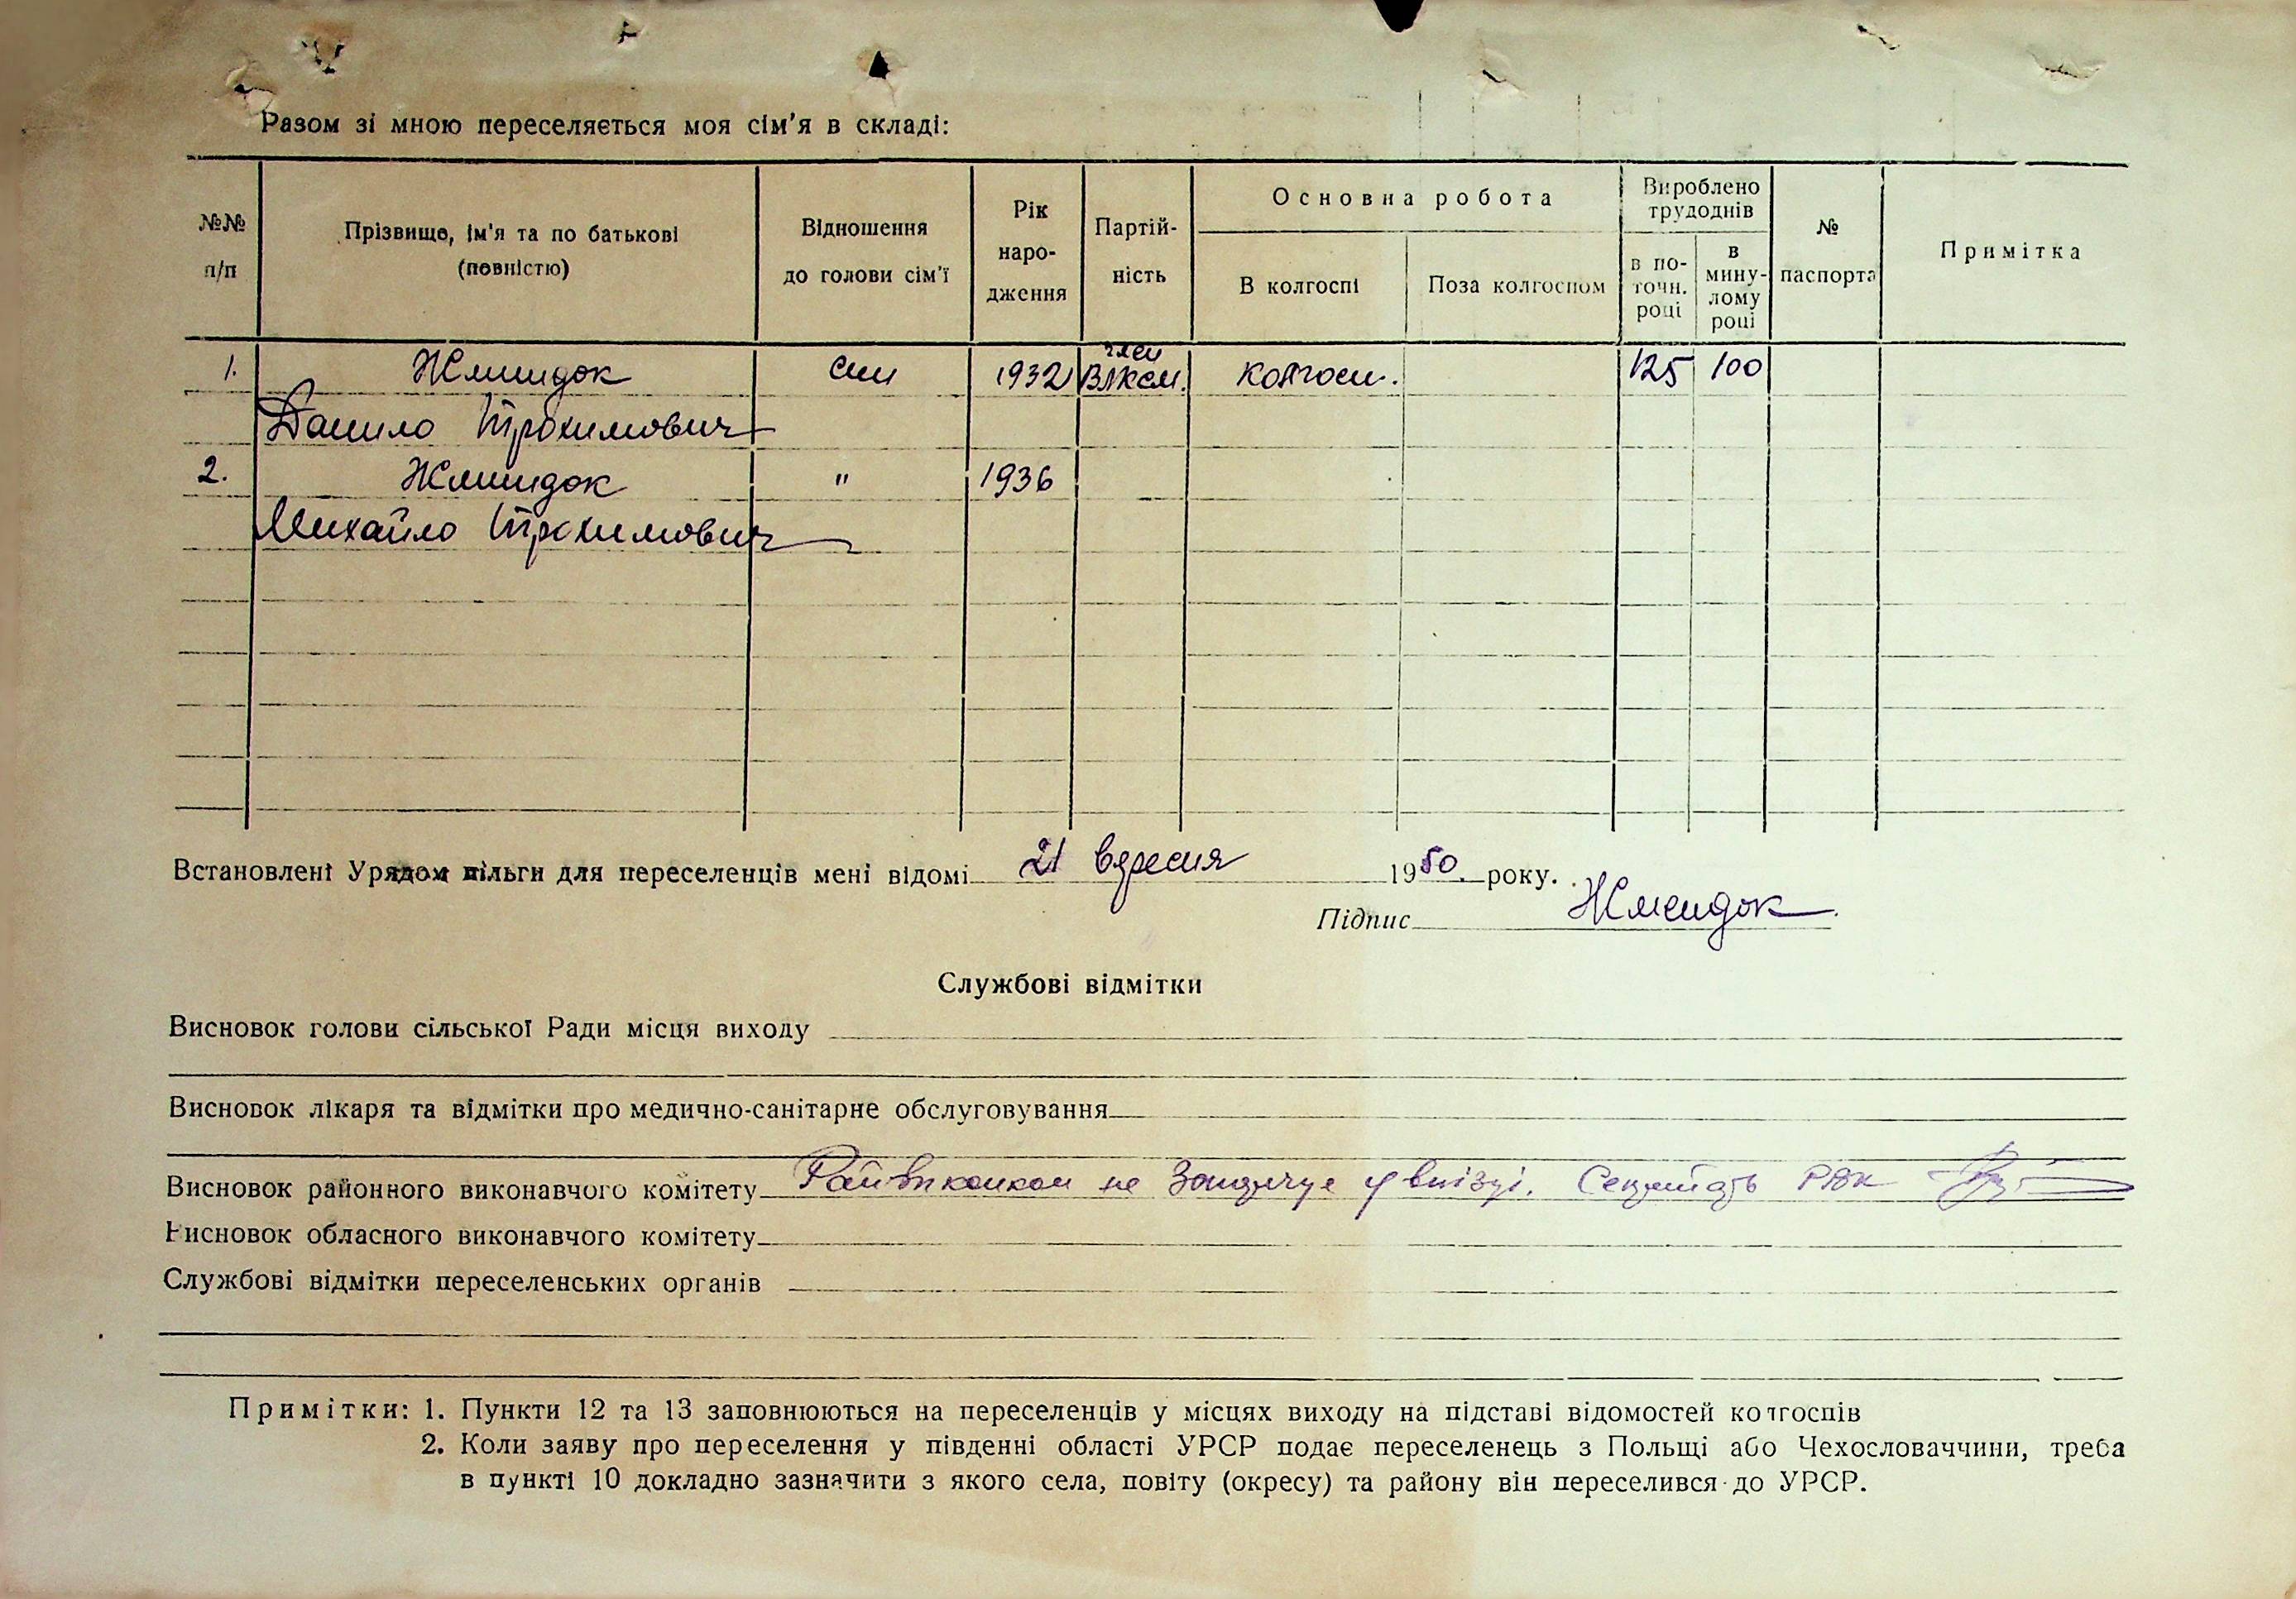 Разом зі мною переселяється моя сім'я в складі:
№№ п/п
Прізвище, ім'я та по батькові (повністю)
Відношення до голови сім'ї
Рік народження
Партійність
Основна робота
В колгоспі
Поза колгоспом
Вироблено трудоднів
в поточн. році
в минулому році
№ паспорта
Примітка
1. Жмиидок син 1932 член ВЛКСМ. колгосп. 125 100
Данило Трохимович
2. Жмиидок " 1936
Михайло Трохимович
Встановлені Урядом пільги для переселенців мені відомі 21 вересня 1950 року.
Підпис Жмиидок
Службові відмітки
Висновок голови сільської Ради місця виходу
Висновок лікаря та відмітки про медично-санітарне обслуговування
Висновок районного виконавчого комітету Райвиконком не заперечує у виїзді. Секретарь РВК
Висновок обласного виконавчого комітету
Службові відмітки переселенських органів
Примітки: 1. Пункти 12 та 13 заповнюються на переселенців у місцях виходу на підставі відомостей колгоспів
2. Коли заяву про переселення у південні області УРСР подає переселенець з Польщі або Чехословаччини, треба
в пункті 10 докладно зазначити з якого села, повіту (окресу) та району він переселився до УРСР.